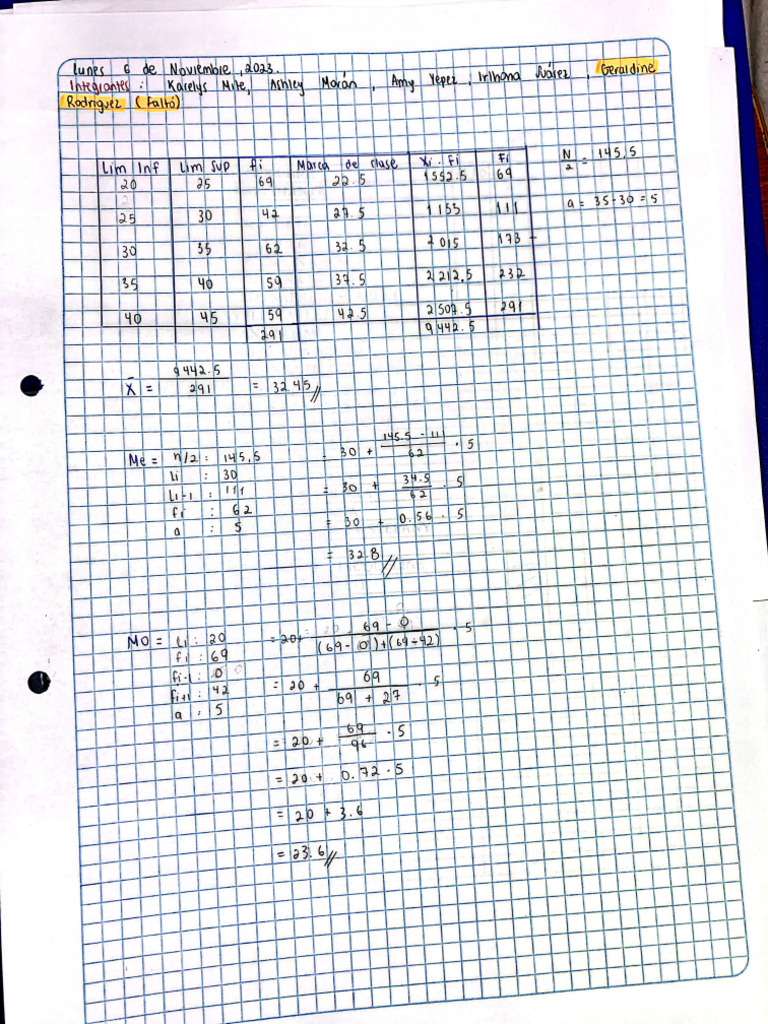 Lunes 6 de Noviembre, 2023.
Integrantes: Karelys Mite, Ashley Morán, Amy Yepez, Irlhana Juárez, Geraldine
Rodriguez (faltó)
Lim Inf Lim Sup fi Marca de clase Xi . fi Fi
20 25 69 22.5 1552.5 69
25 30 42 27.5 1155 111
30 35 62 32.5 2015 173
35 40 59 37.5 2212.5 232
40 45 59 42.5 2507.5 291
291 9442.5
N/2 = 145,5
a = 35-30 = 5
X̄ = 9442.5/291 = 32.45//
Me = n/2 : 145,5 = 30 + (145.5 - 111)/62 . 5
Li : 30
Li-1 : 111 = 30 + 34.5/62 . 5
fi : 62
a : 5 = 30 + 0.56 . 5
= 32.8//
MO = Li : 20 = 20+ (69 - 0)/((69-0)+(69-42)) . 5
fi : 69
fi-1 : 0 = 20 + 69/(69 + 27) . 5
fi+1 : 42
a : 5
= 20 + 69/96 . 5
= 20 + 0.72 . 5
= 20 + 3.6
= 23.6//